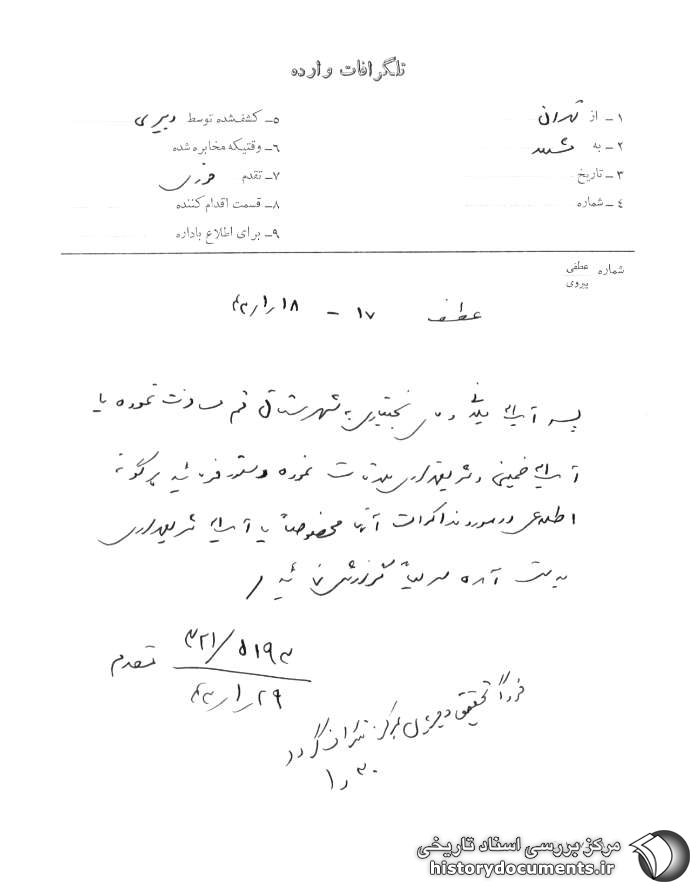 تلگرافات وارده
۱ـ از تهران
۲ـ به
۳ـ تاریخ
۴ـ شماره
۵ـ کشف‌شده توسط دبیری
۶ـ وقتیکه مخابره شده
۷ـ تقدم فوری
۸ـ قسمت اقدام کننده
۹ـ برای اطلاع باداره
شماره عطفی
پیروی
عطف ۱۷ – ۴۳/۱/۱۸
پسر آیت‌اله و بختیاری به شهرستان قم مسافرت نموده با
آیت‌اله خمینی و شریعتمداری ملاقات نموده دستور فرمائید هرگونه
اطلاعی در مورد مذاکرات آنها مخصوصاً با آیت‌اله شریعتمداری
بدست آمده سریعاً گزارش نمائید
۳۲۱/۵۱۹۳ مقدم
۴۳/۱/۲۹
فوراً تحقیق و به مرکز تلگراف گردد
۱/۳۰
مرکز بررسی اسناد تاریخی
historydocuments.ir